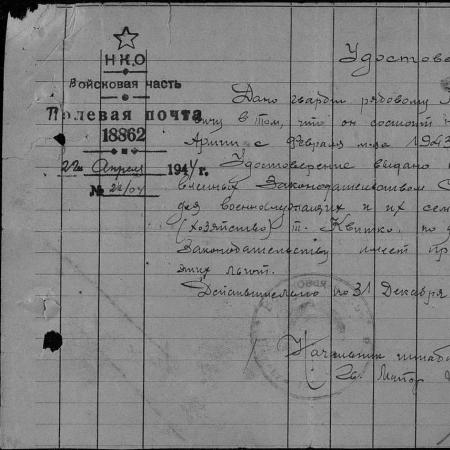 Удостове
НКО
Войсковая часть
Полевая почта
18862
22го Апреля 1944 г.
№ 22/04
Дано гвардии рядовому
вичу в том, что он состоит
Армии с Февраля м-ца 1943
Удостоверение выдано
вленных Законодательством С
для военнослужащих и их сем
(хозяйство) т. Квитко, по
Законодательству имеет пр
этих льгот.
Действительно по 31 Декабря
Начальник штаба
Гв. Майор